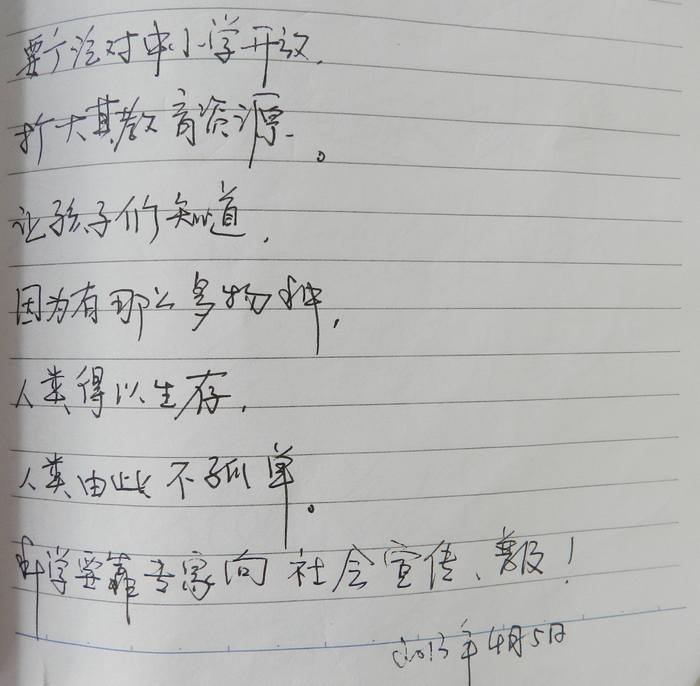 要广泛对中小学开放,
扩大其教育资源。
让孩子们知道,
因为有那么多物种,
人类得以生存,
人类由此不孤单。
科学要靠专家向社会宣传、普及!
2013年4月5日